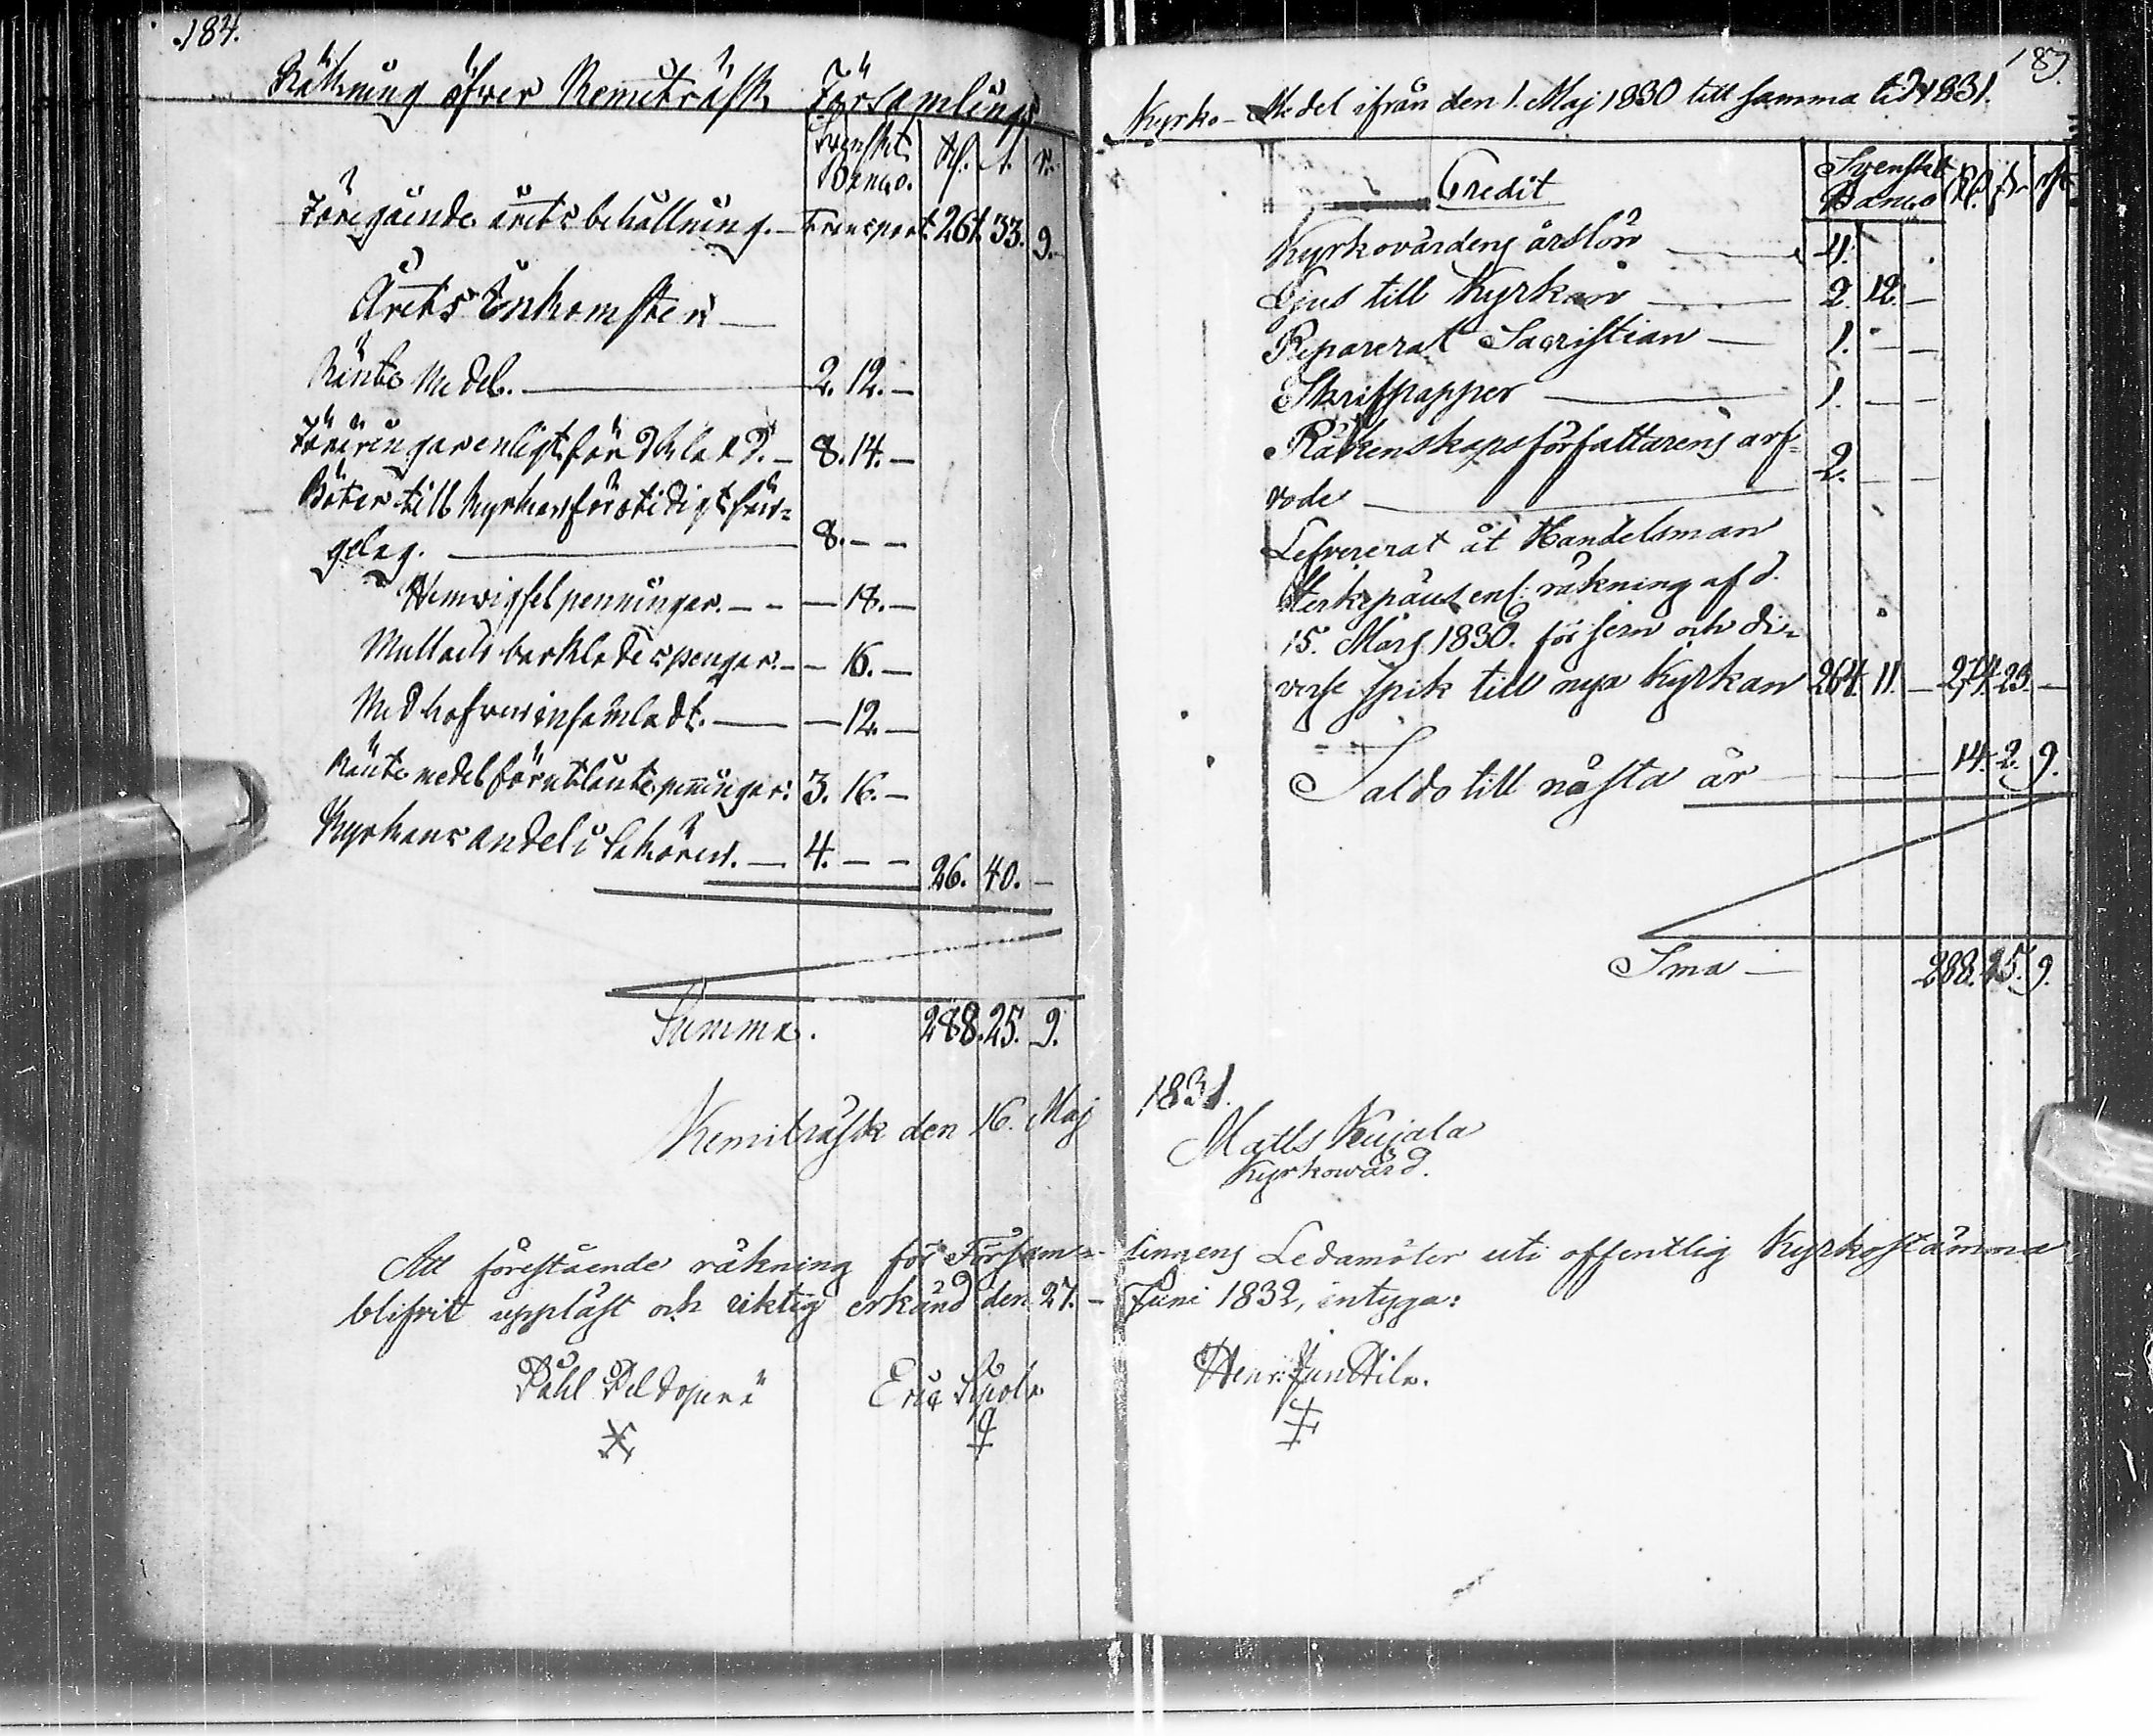 184.
Räkning öfver Kemiträsk Församlings
Svenskt Banco. Rd. s. r.
Föregående årets behållning. Transport. 261. 33. 9.
Årets Inkomster
Ränte Medel. 2. 12. —
Föräringar enligt förd Klad. 8. 14. —
Böter till Kyrkan för otidigt sän=
gelag. 8. — —
Hemvigsel penningar. — 18. —
— 16. —
Med hofven insamladt. — 12. —
Ränte medel för utlänte penningar: 3. 16. —
Kyrkans andel i Sakören. 4. — — 26. 40. —
Summa. 288. 25. 9.
Kemiträsk den 16. Maj
Att förestående räkning för Försam=
blifvit uppläst och riktig erkänd den 27.
Påhl Peldoperä Eric
187.
Kyrko-Medel ifrån den 1. Maj 1830 till samma tid 1831.
Credit Svenskt Banco Rd. s. rst
Kyrkovärdens årslön 4.
Ljus till Kyrkan 2. 12. —
Reparerat Sacristian 1. — —
Skrifpapper 1. — —
Räkenskapsförfattarens arf=
vode 2. — —
Lefvererat åt Handelsman
enl: räkning af d.
15. Mars 1830. för jern och di=
verse spik till nya Kyrkan 264. 11. — 274. 23. —
Saldo till nästa år 14. 2. 9.
Sma 288. 25. 9.
1831.
Matts Kujala
Kyrkowärd.
lingens Ledamöter uti offentlig Kyrkostämma
Juni 1832, intyga:
Henr: Junttila.